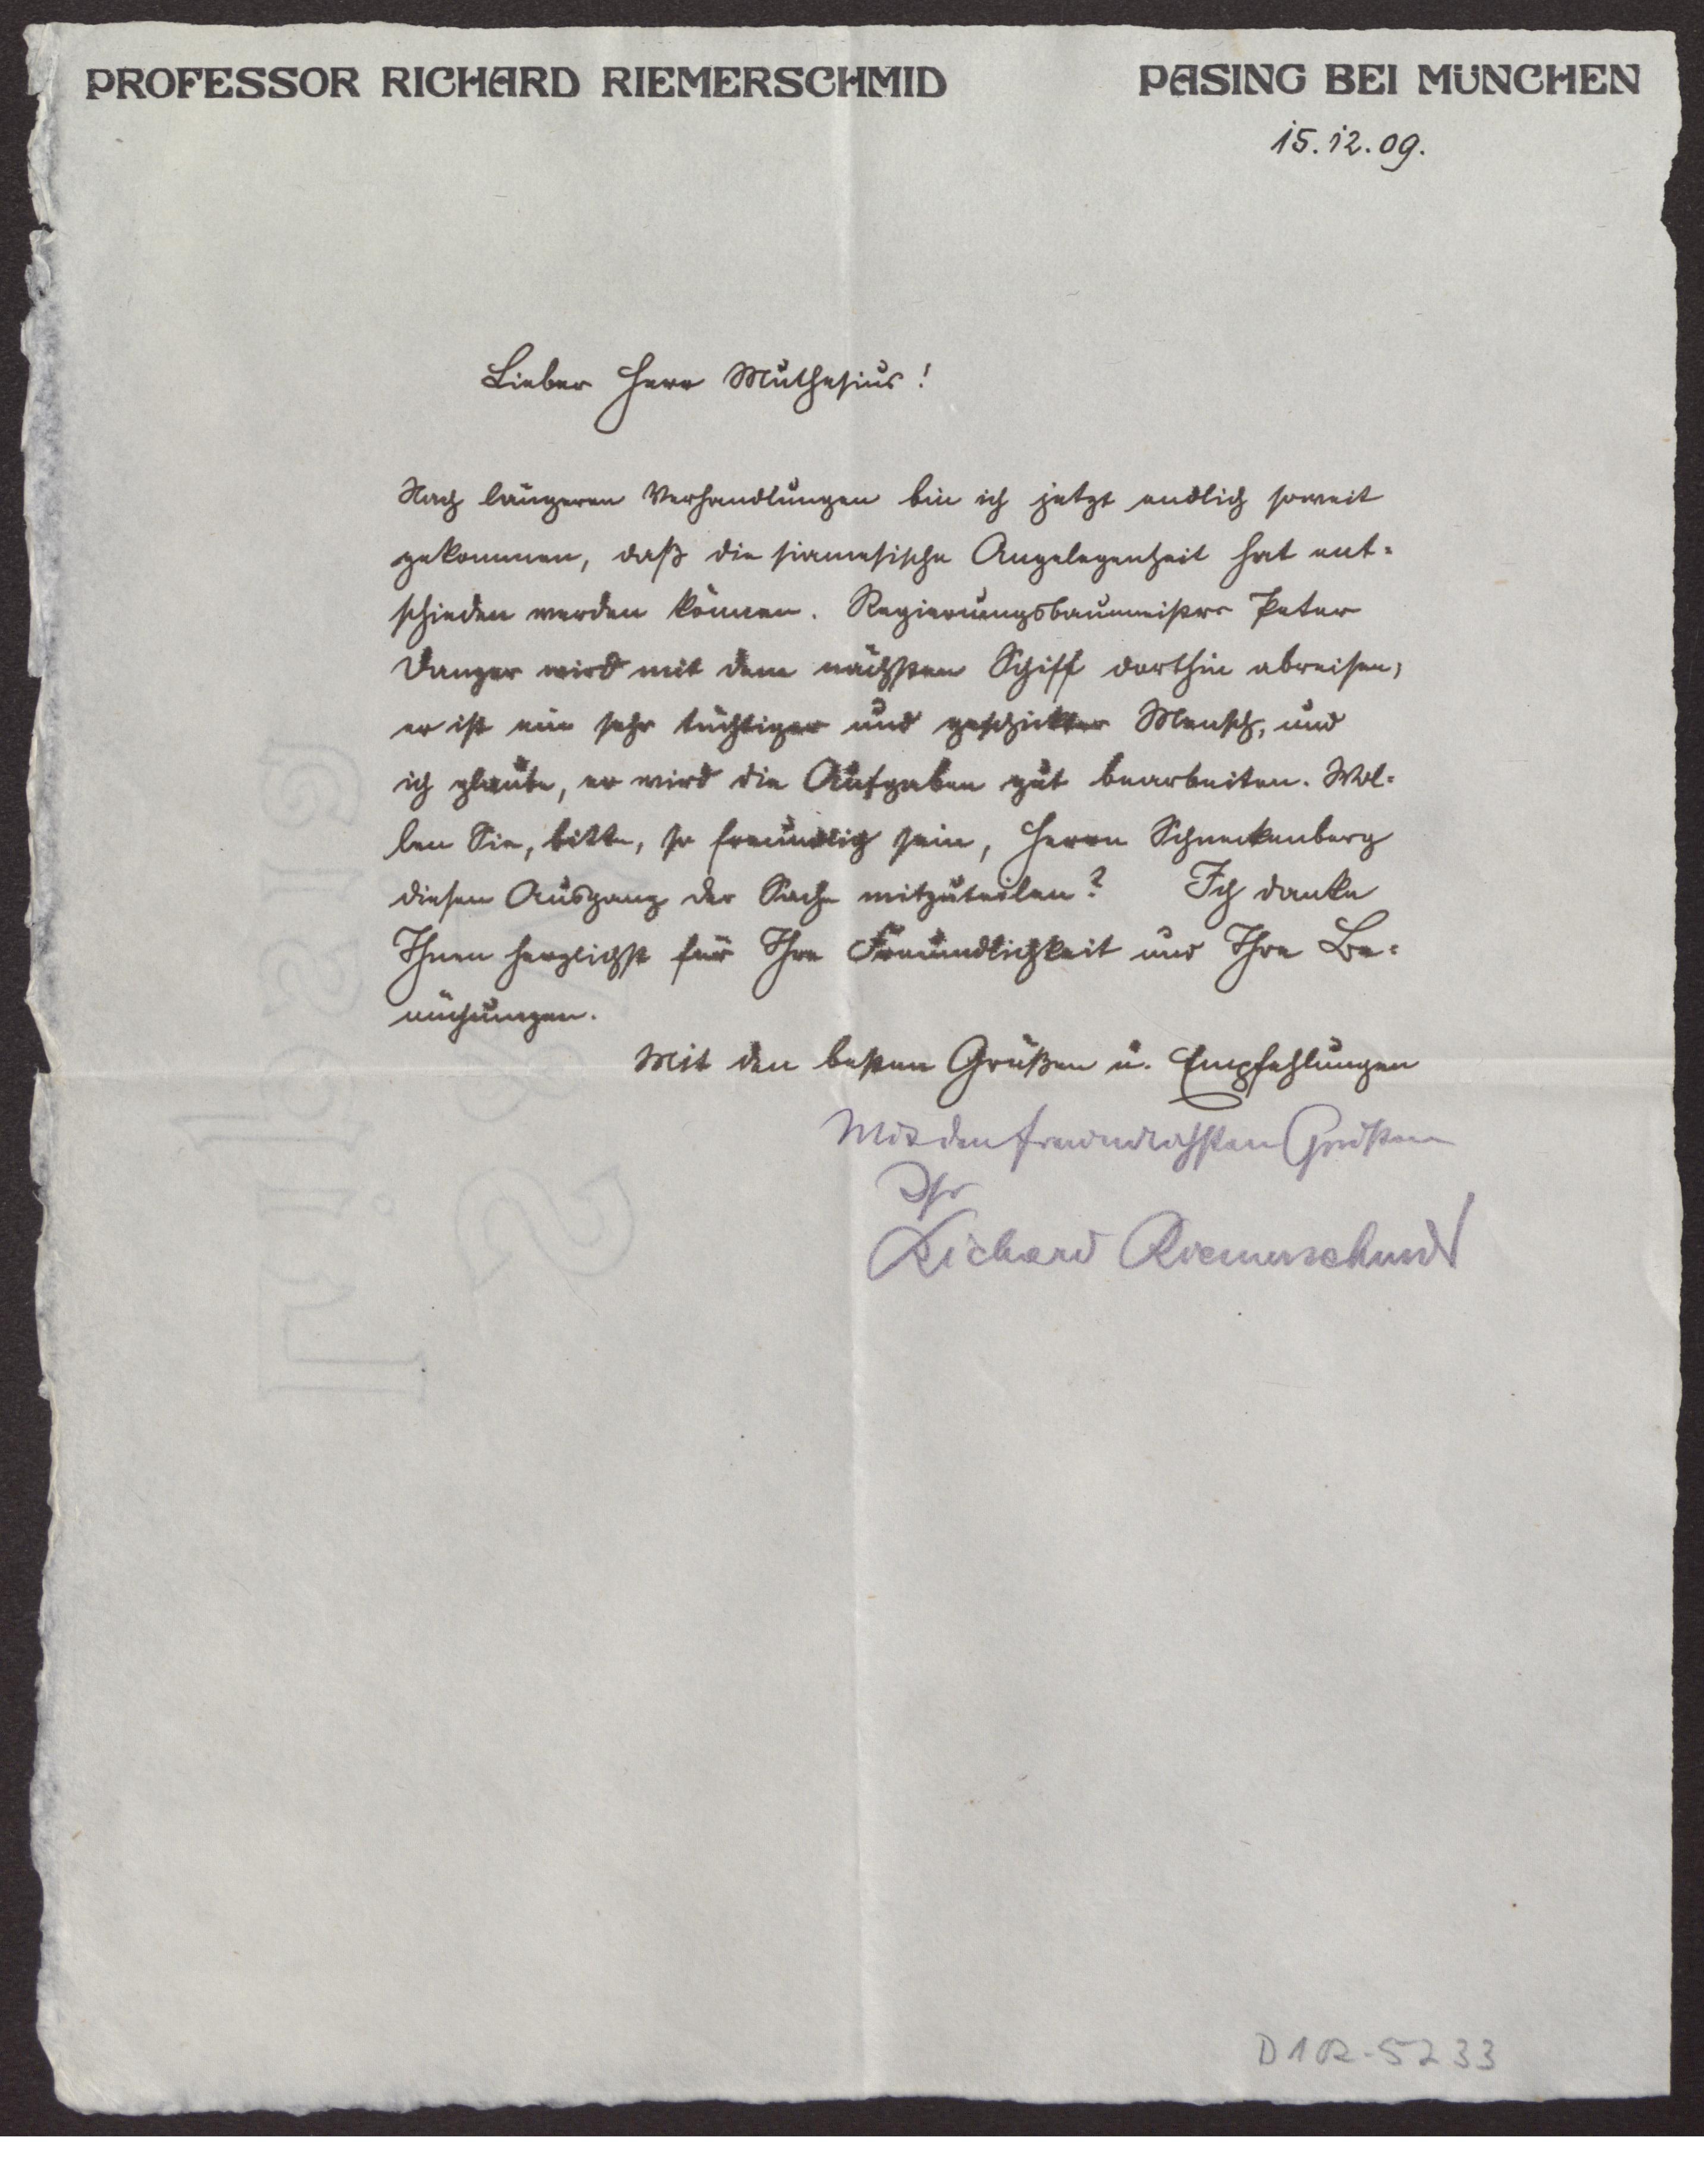 PROFESSOR RICHARD RIEMERSCHMID PASING BEI MÜNCHEN
15.12.09.
Lieber Herr Muthesius!
Nach längeren Verhandlungen bin ich jetzt endlich soweit
gekommen, daß die siamesische Angelegenheit hat ent-
schieden werden können. Regierungsbaumeister Peter
Danzer wird mit dem nächsten Schiff dorthin abreisen,
er ist ein sehr tüchtiger und geschickter Mensch, und
ich glaube, er wird die Aufgaben gut bearbeiten. Wol-
len Sie, bitte, so freundlich sein, Herrn Schneckenberg
diesen Ausgang der Sache mitzuteilen? Ich danke
Ihnen herzlichst für Ihre Freundlichkeit und Ihre Be-
mühungen.
Mit den besten Grüßen u. Empfehlungen
Mit den freundlichsten Grüßen
Ihr
Richard Riemerschmid
D 102-5233